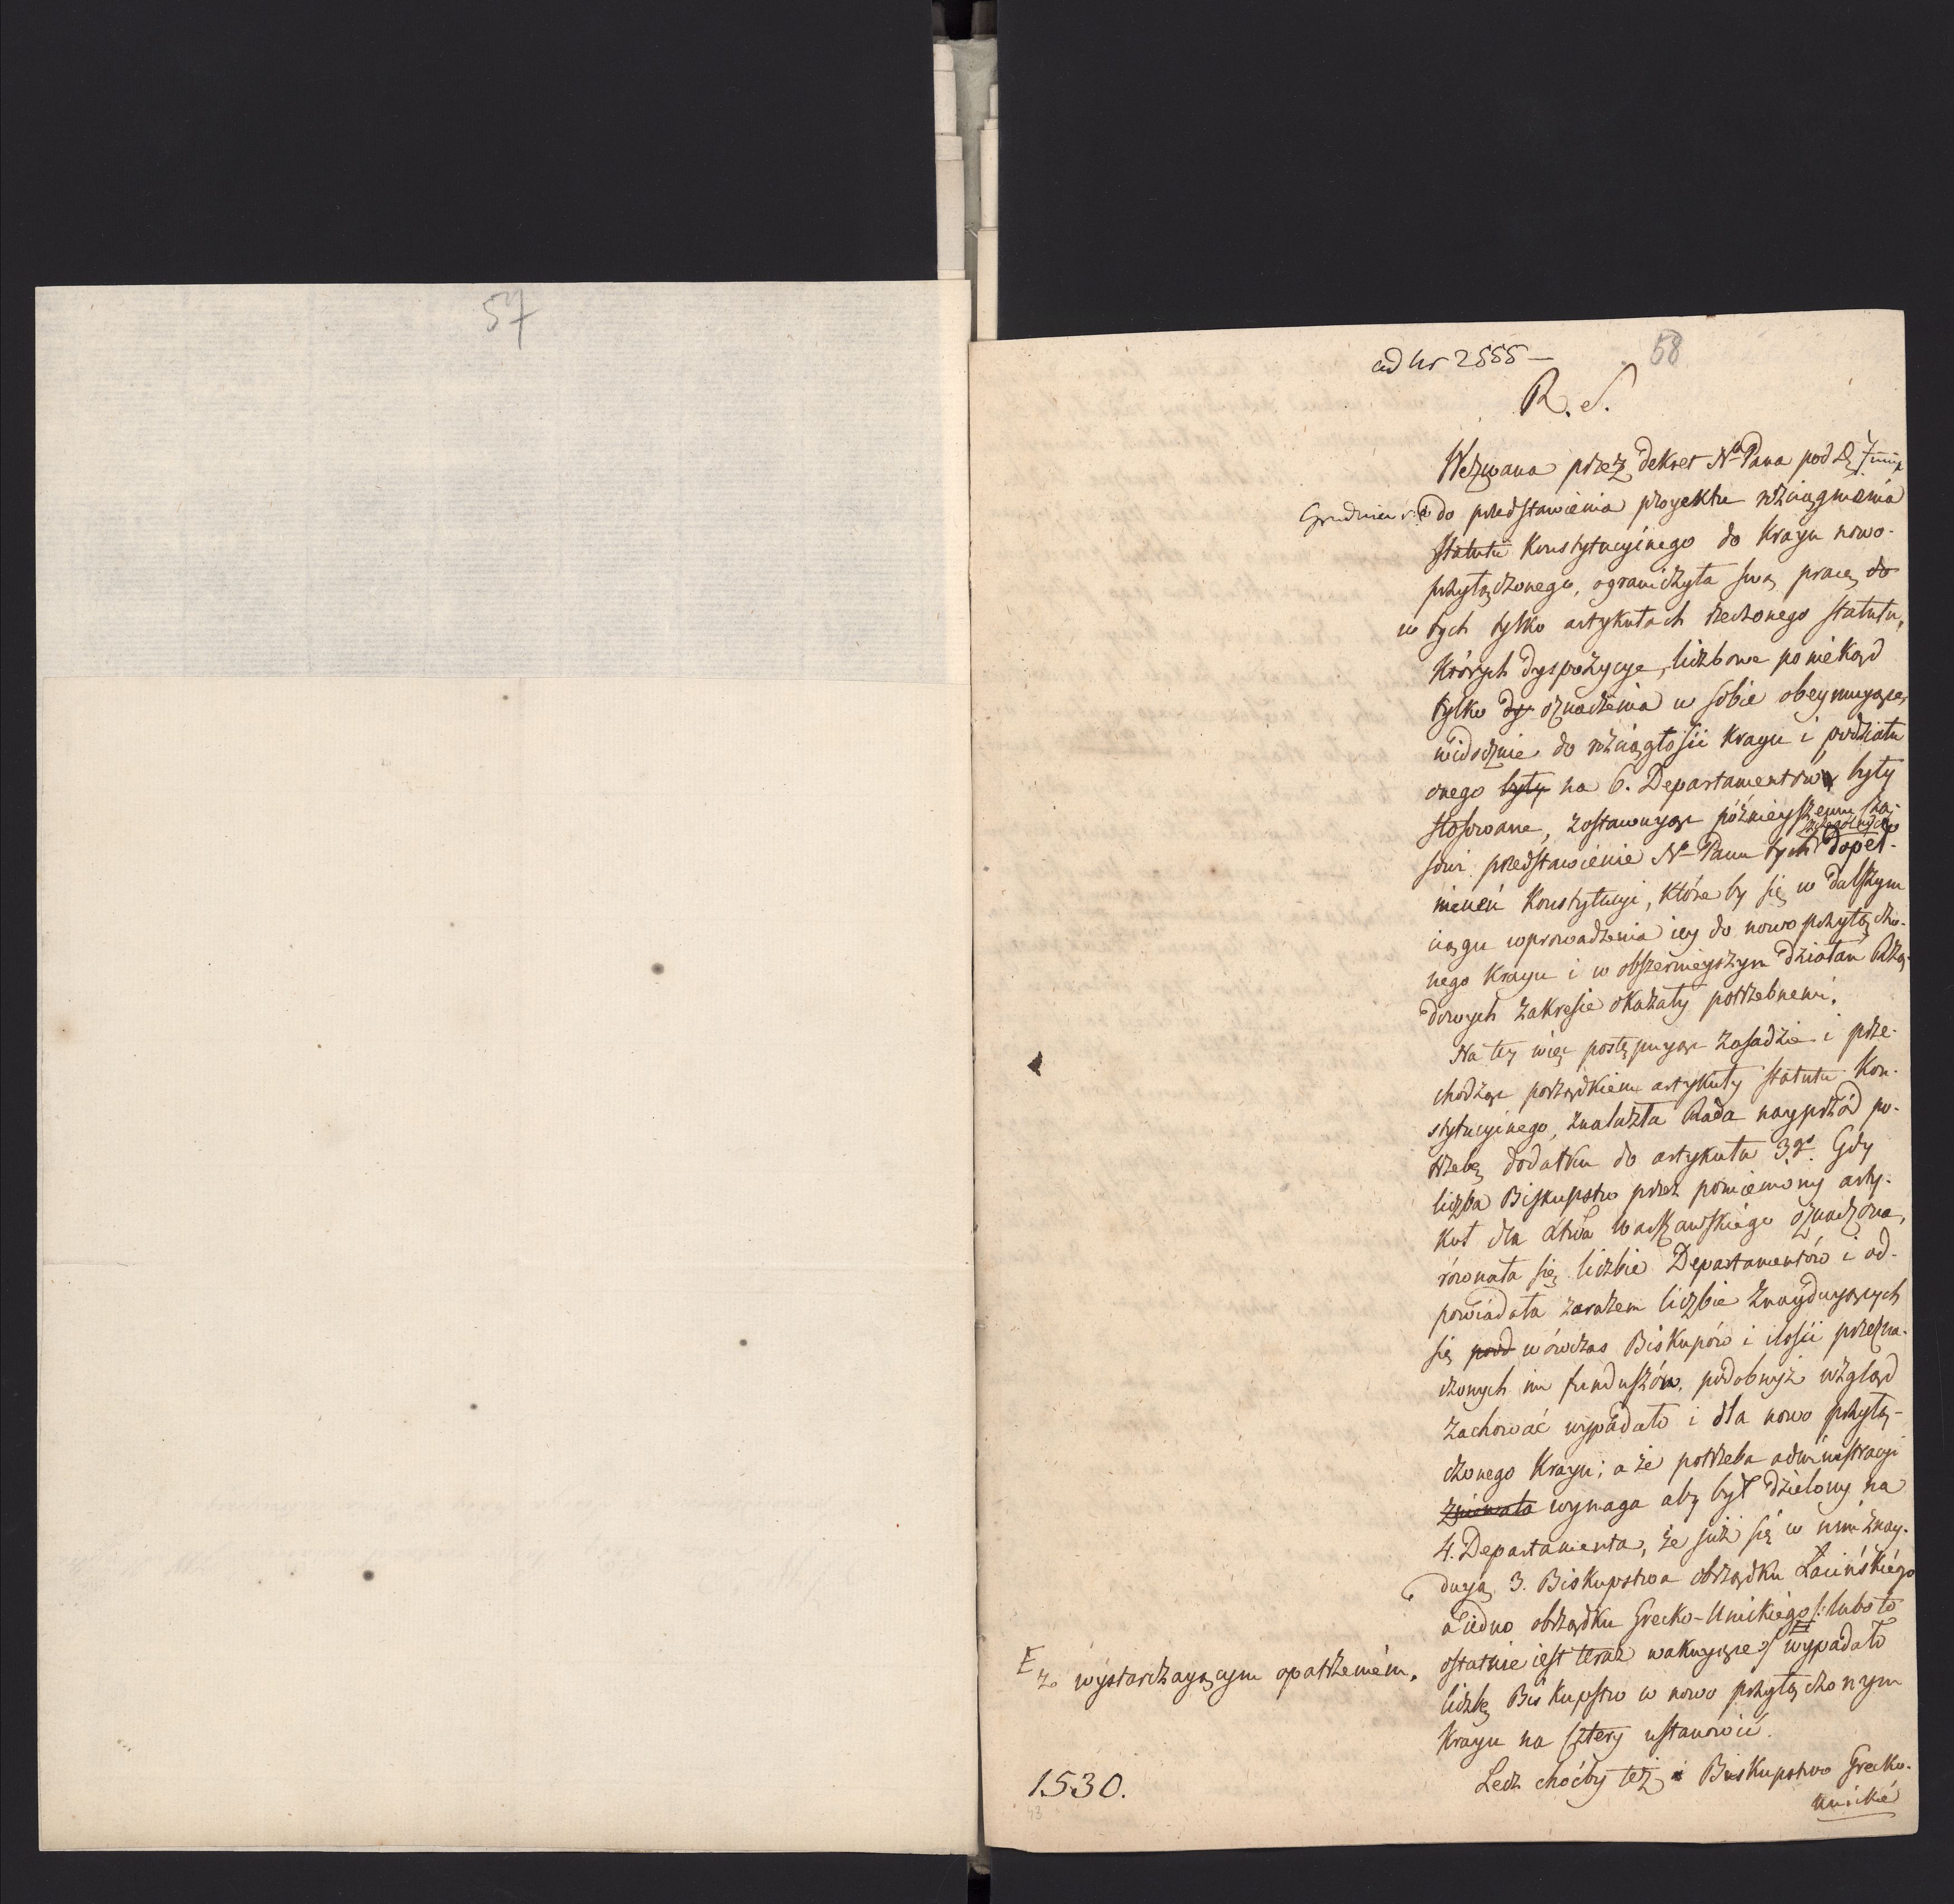 57
58
ad nr 2555 —
R. S.
Wezwana przez dekret Nº Pana pod d. 7
Grudnia r. b. do przedstawienia proyektu rozciągnienia
statutu Konstytucyinego do Kraju nowo-
przyłączonego, ograniczyła swą pracę do
w tych tylko artykułach rzeczonego statutu,
których dyspozycye, liczbowe poniekąd
tylko dy oznaczenia w sobie obeymuyące,
widocznie do rozciągłości Kraju i podziału
onego były na 6. Departamentów były
stosowane, zostawuyąc późnieyszemu cza-
sowi przedstawienie Nº Panu tych szczególnych dopeł-
nień Konstytucyi, które by się w dalszym
ciągu wprowadzenia iey do nowo przyłączo-
nego Kraju i w obszernieyszym działań Rzą-
dowych zakresie okazały potrzebnemi.
Na tey więc postępuyąc zasadzie i prze-
chodząc porządkiem artykuły statutu Kon-
stytucyinego, znalazła Rada nayprzód po-
trzebę dodatku do artykułu 3go. Gdy
liczba Biskupstw przez pomieniony arty-
kuł dla Xtwa Warszawskiego oznaczona,
równała się liczbie Departamentów i od-
powiadała zarazem liczbie znayduyących
się pod wówczas Biskupów i ilości przezna-
czonych im funduszów, podobnyż wzgląd
zachować wypadało i dla nowo przyłą-
czonego Kraju; a że potrzeba administracyi
wymaga aby był dzielony na
4. Departamenta, że już się w nim znay-
duyą 3. Biskupstwa obrządku Łacińskiego
a iedno obrządku Grecko-Unickiego /: lubo to
ostatnie iest teraz wakuyące :/ wypadało
E z wystarczayącym opatrzeniem.
liczbę Biskupstw w nowo przyłączonym
Kraju na cztery ustanowić.
Lecz choćby też i Biskupstwo Grecko-
unickie
1530.
43